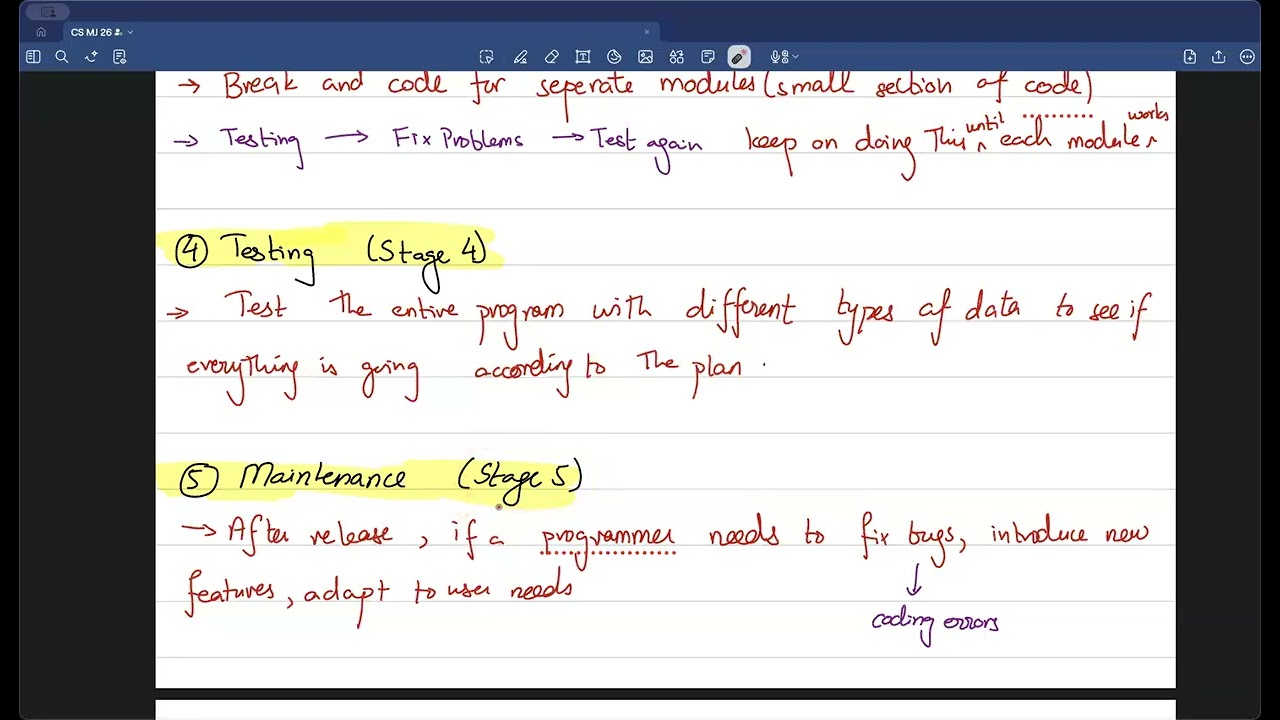 CS MJ 26
→ Break and code for seperate modules (small section of code)
→ Testing → Fix Problems → Test again keep on doing This until each module works
④ Testing (Stage 4)
→ Test the entire program with different types of data to see if
everything is going according to the plan.
⑤ Maintenance (Stage 5)
→ After release, if a programmer needs to fix bugs, introduce new
features, adapt to user needs
coding errors